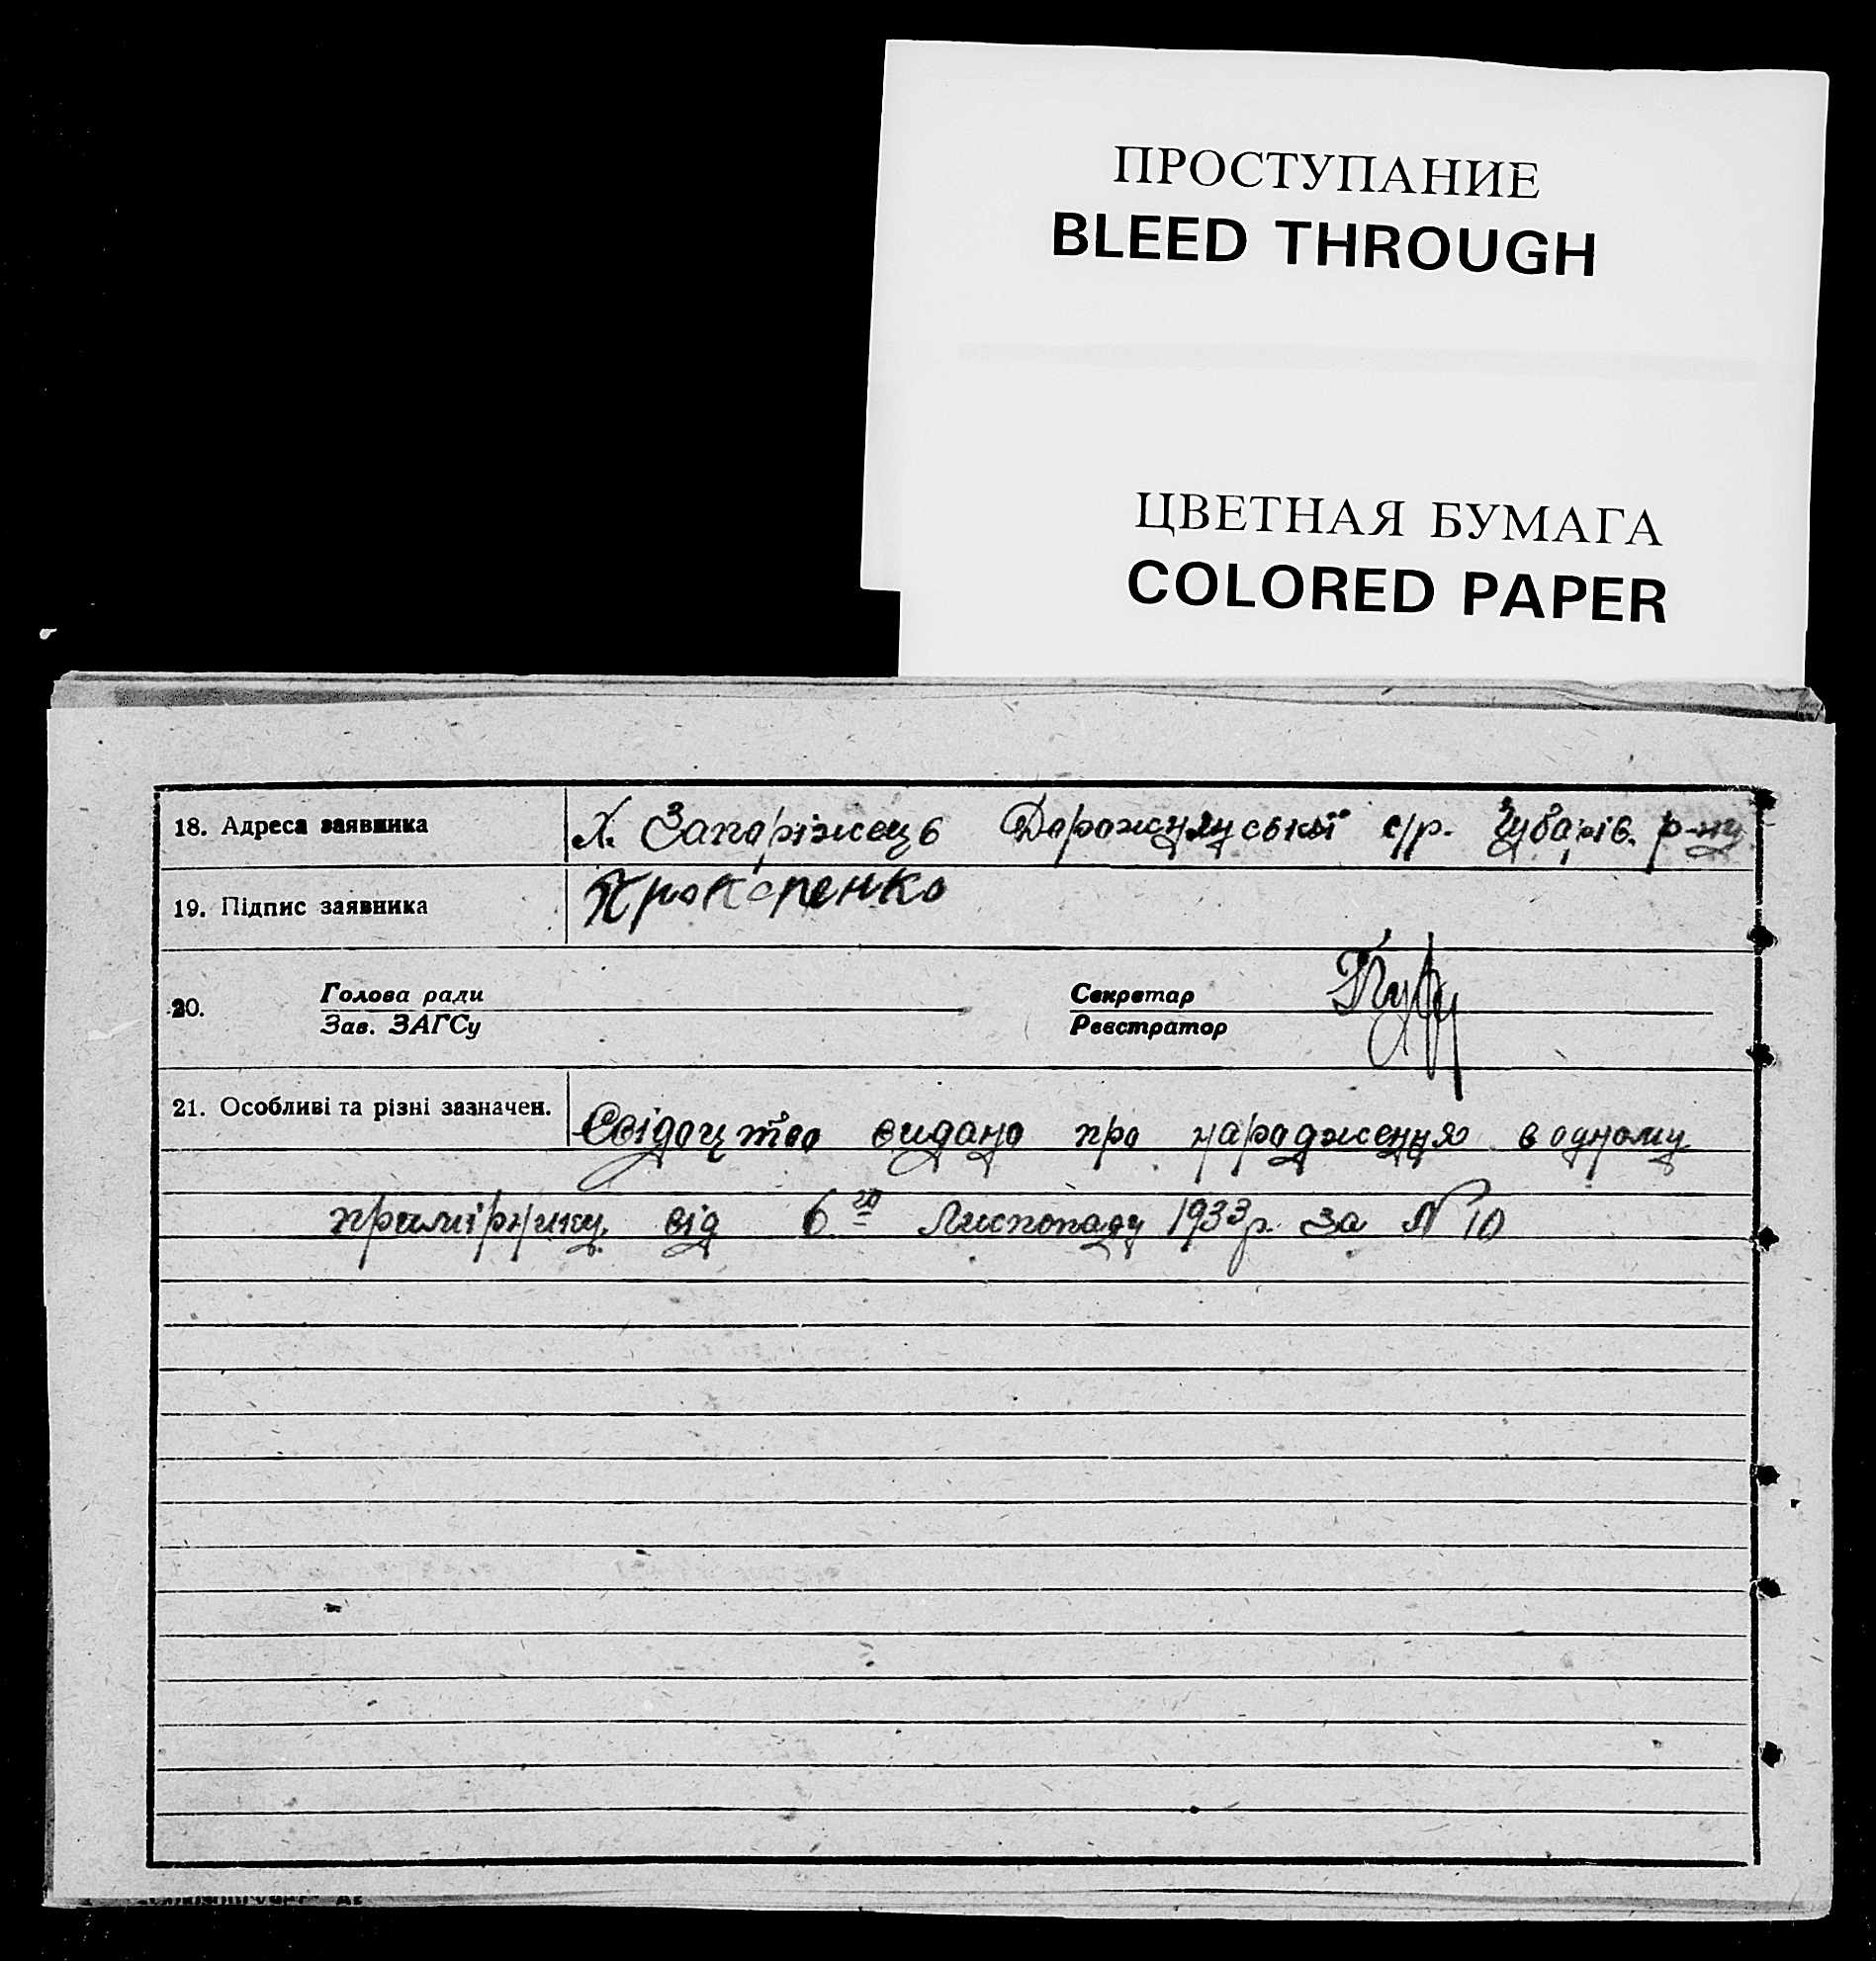 ПРОСТУПАНИЕ
BLEED THROUGH
ЦВЕТНАЯ БУМАГА
COLORED PAPER
18. Адреса заявника Х. Запоріжець с/р. р-ну
19. Підпис заявника
20. Голова ради Секретар
Зав. ЗАГСу Реєстратор
21. Особливі та різні зазначен. Свідоцтво видано про народження в одному
примірнику від 6го Листопаду 1933р. за № 10